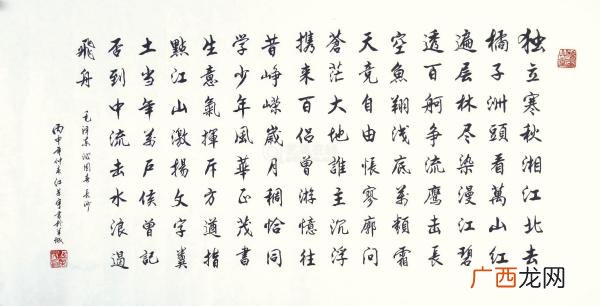 独立寒秋湘江北去
橘子洲頭看萬山红
遍层林尽染漫江碧
透百舸争流鹰击長
空魚翔浅底萬類霜
天竞自由怅寥廓问
蒼茫大地誰主沉浮
携来百侣曾游憶往
昔峥嵘歲月稠恰同
学少年風華正茂書
生意氣揮斥方遒指
點江山激揚文字糞
土当年萬户侯曾記
否到中流击水浪遏
飛舟
毛泽东沁园春長沙
丙申年仲春
广西龙网